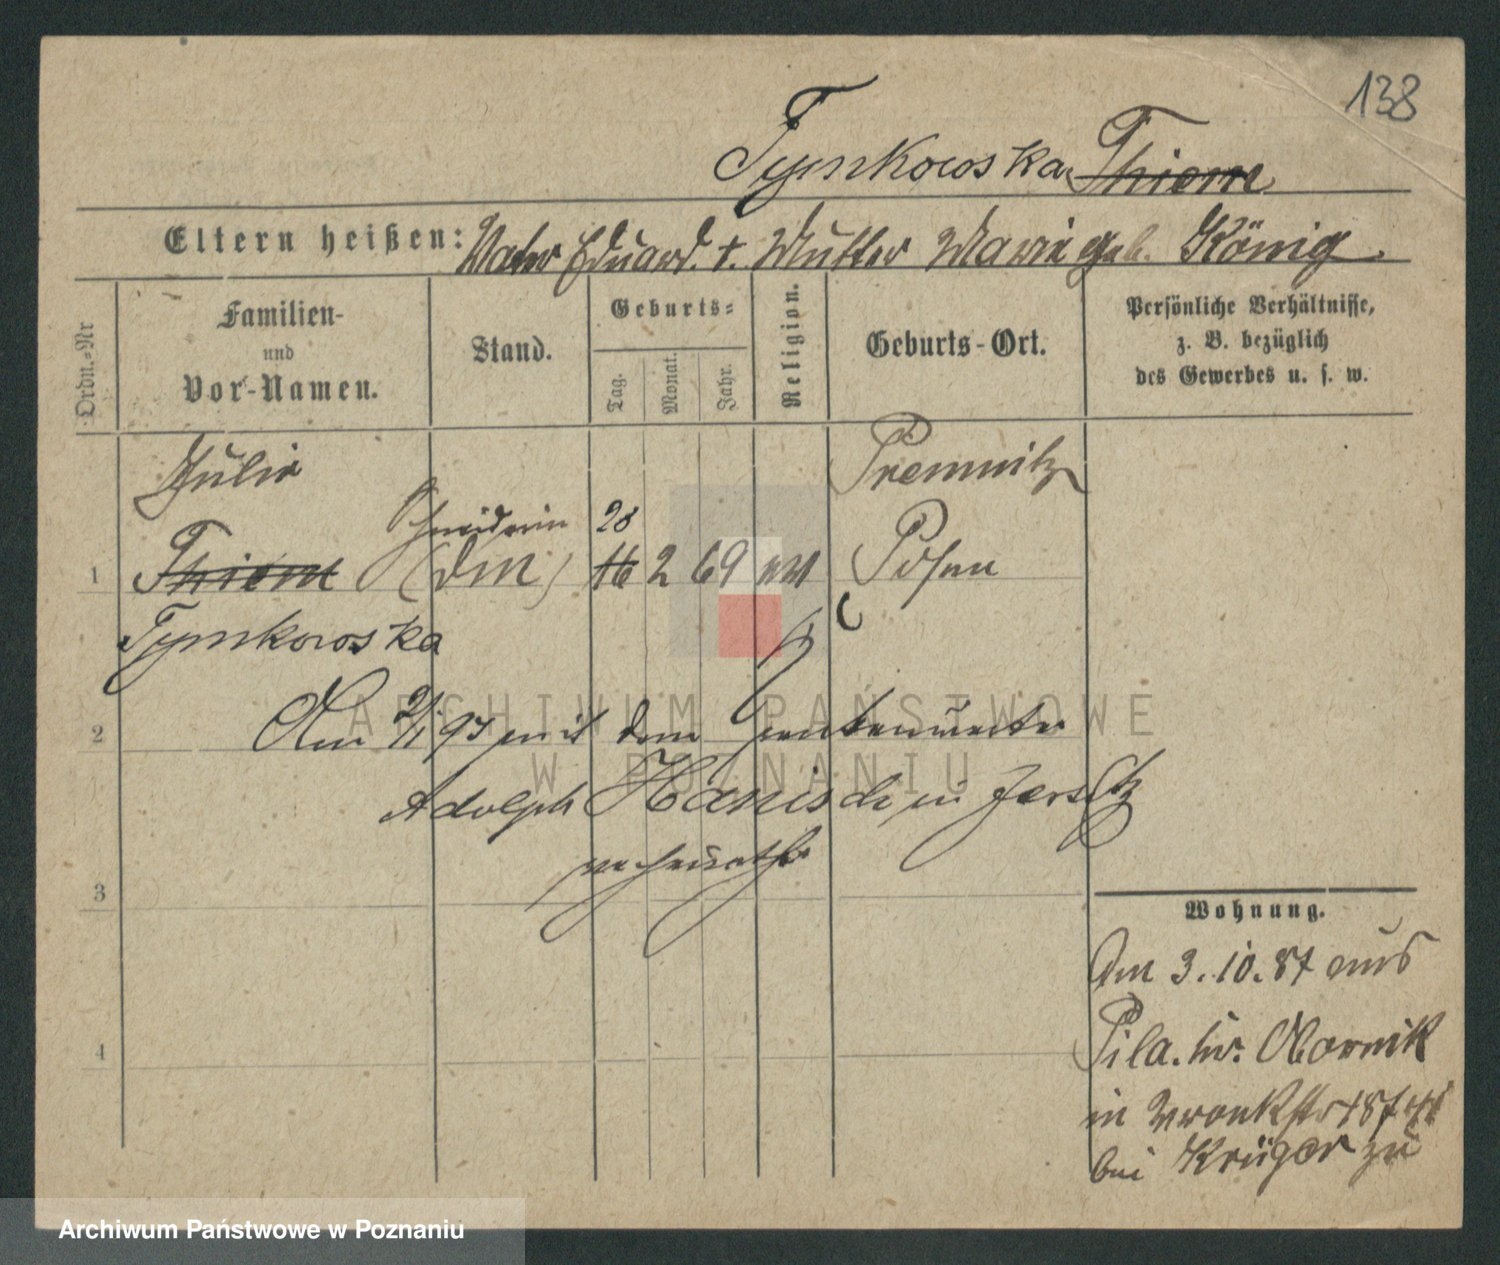 138
Tymkowska Thiem
Eltern heißen: Vater Eduard. †. Mutter Marie geb. König.
Ordn.=Nr
Familien-
und
Vor-Namen.
Stand.
Geburts=
Tag.
Monat.
Jahr.
Religion.
Geburts-Ort.
Persönliche Verhältnisse,
z. B. bezüglich
des Gewerbes u. s. w.
Julie
Premnitz
Schneiderin 28
1 Thiem (Dm) 16 2 69 ev Posen
Tymkowska
2 Am 2/1 95 mit dem
Adolph Hanisch in Jersitz
verheirathet
3
Wohnung.
Am 3.10.87 aus
4
Pila. Kr. Obornik
in Wronkstr
bei Krüger zu
ARCHIWUM PAŃSTWOWE
W POZNANIU
Archiwum Państwowe w Poznaniu